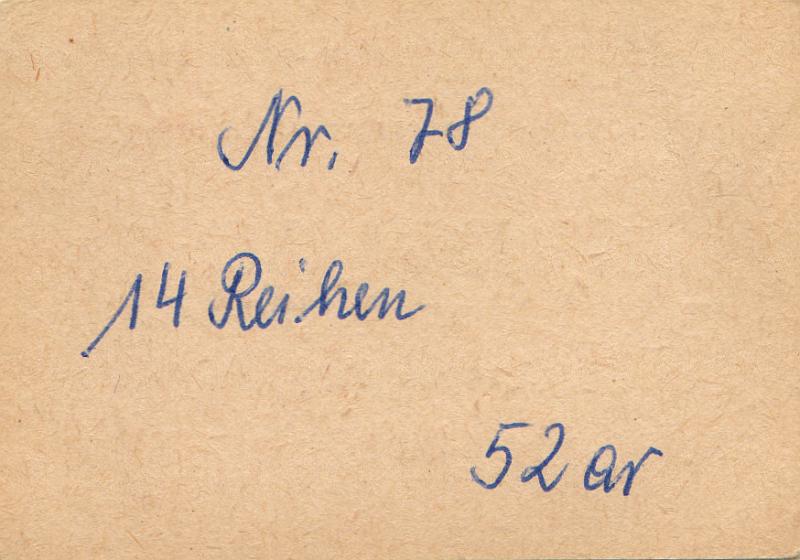 Nr. 78
14 Reihen
52 ar